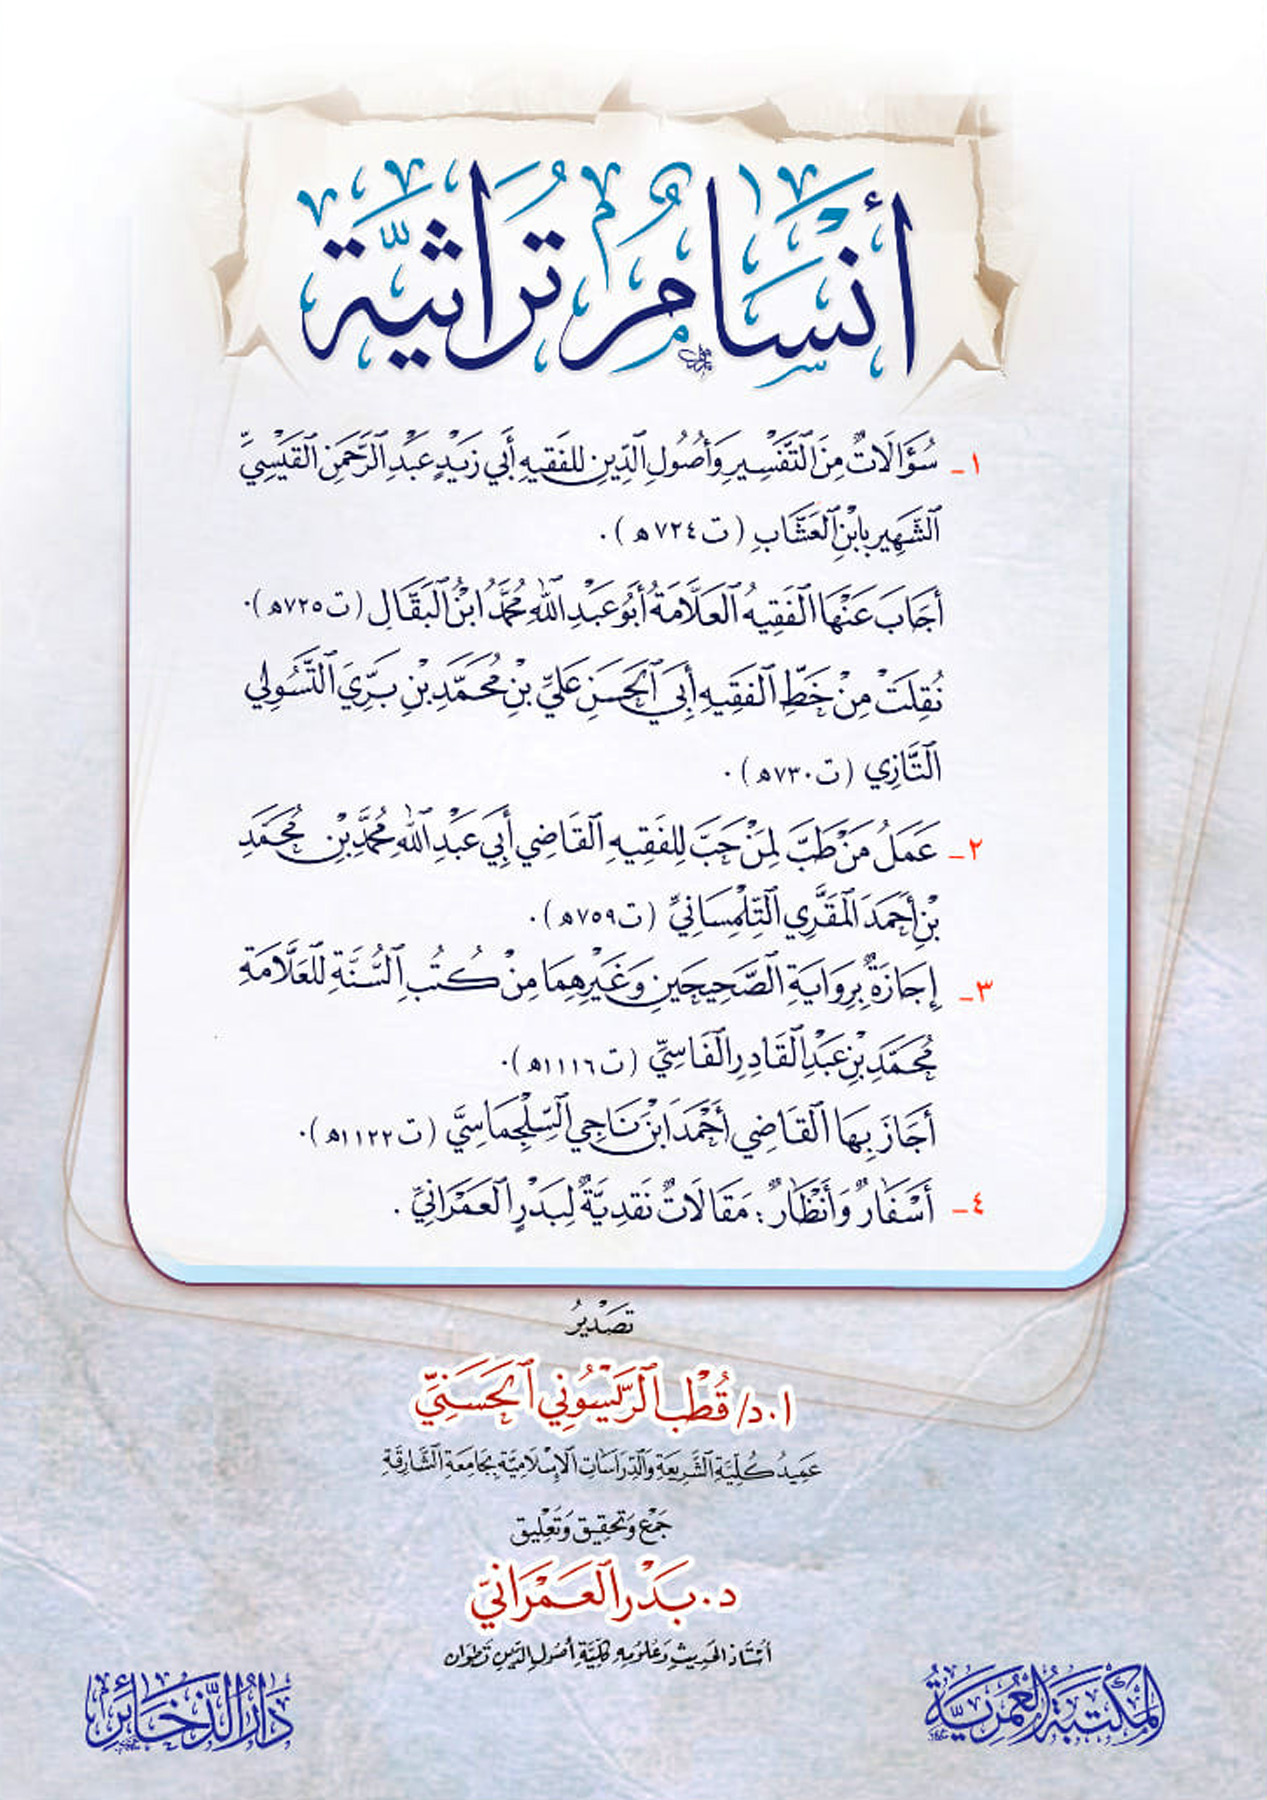 أَنْسَامٌ تُرَاثِيَّة
١- سُؤَالَاتٌ مِنَ التَّفْسِيرِ وَأُصُولِ الدِّينِ لِلفَقِيهِ أَبِي زَيْدٍ عَبْدِ الرَّحْمَنِ القَيْسِيِّ
الشَّهِيرِ بِابْنِ العَشَّابِ (ت٧٢٤ه).
أَجَابَ عَنْهَا الفَقِيهُ العَلَّامَةُ أَبُو عَبْدِ اللهِ مُحَمَّدُ ابْنُ البَقَّالِ (ت٧٢٥ه).
نُقِلَتْ مِنْ خَطِّ الفَقِيهِ أَبِي الحَسَنِ عَلِيِّ بْنِ مُحَمَّدِ بْنِ بَرِّيَ التَّسُولِي
التَّازِي (ت٧٣٠ه).
٢- عَمَلُ مَنْ طَبَّ لِمَنْ حَبَّ لِلفَقِيهِ القَاضِي أَبِي عَبْدِ اللهِ مُحَمَّدِ بْنِ مُحَمَّدِ
بْنِ أَحْمَدَ المَقَّرِي التِّلِمْسَانِيِّ (ت٧٥٩ه).
٣- إِجَازَةٌ بِرِوَايَةِ الصَّحِيحَيْنِ وَغَيْرِهِمَا مِنْ كُتُبِ السُّنَّةِ لِلعَلَّامَةِ
مُحَمَّدِ بْنِ عَبْدِ القَادِرِ الفَاسِيِّ (ت١١١٦ه).
أَجَازَ بِهَا القَاضِي أَحْمَدَ ابْنَ نَاجِي السِّلْجِمَاسِيَّ (ت١١٢٢ه).
٤- أَسْفَارٌ وَأَنْظَارٌ: مَقَالَاتٌ نَقْدِيَّةٌ لِبَدْرٍ العَمْرَانِيِّ.
تَصْدِيرُ
ا.د/ قُطْبِ الرَّيْسُونِي الحَسَنِيِّ
عَمِيدُ كُلِّيَّةِ الشَّرِيعَةِ وَالدِّرَاسَاتِ الإِسْلَامِيَّةِ بِجَامِعَةِ الشَّارِقَةِ
جَمْع وَتَحْقِيق وَتَعْلِيق
د. بَدْر العَمْرَانِيّ
أُسْتَاذ الحَدِيثِ وَعُلُومِهِ كُلِّيَّة أُصُولِ الدِّينِ تَطْوَان
المَكْتَبَةُ العُمَرِيَّةُ
دَارُ الذَّخَائِرِ